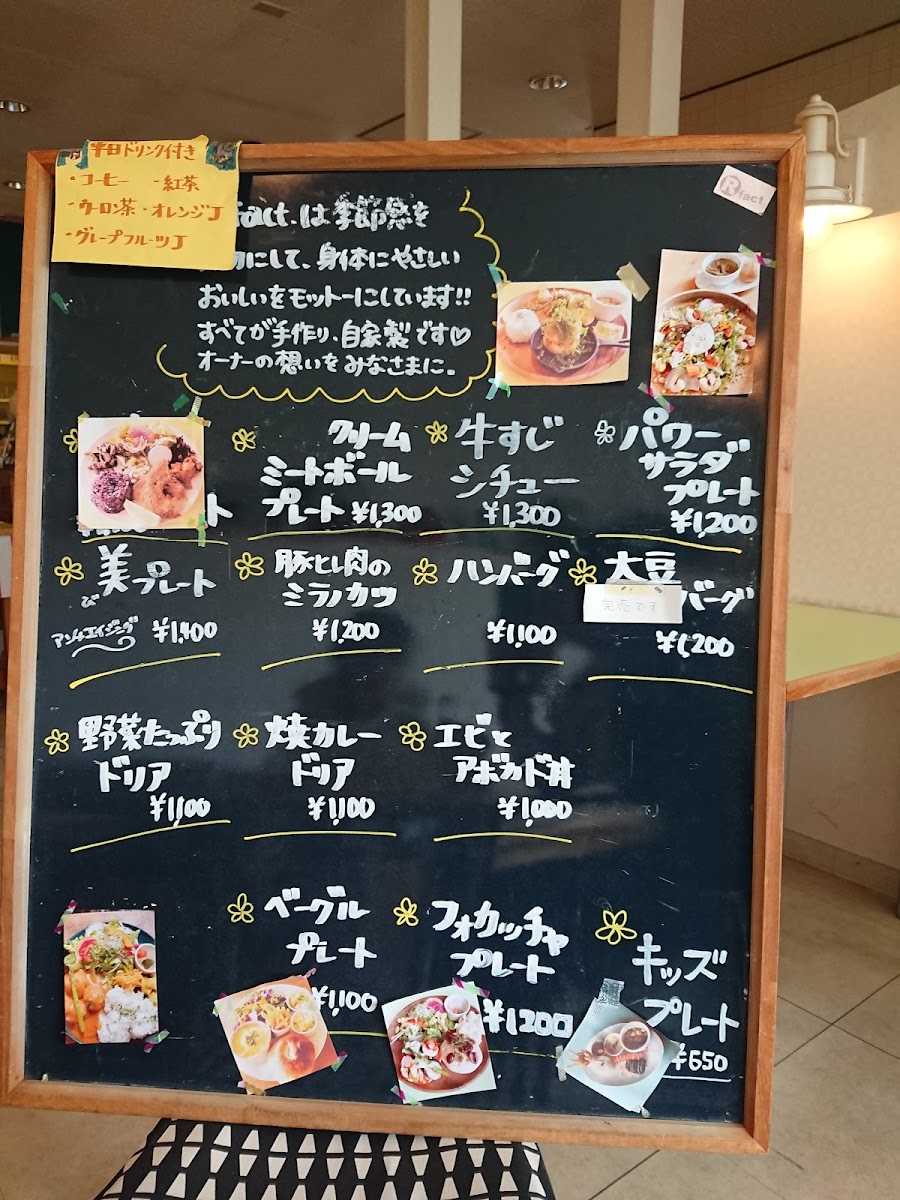 平日ドリンク付き
・コーヒー ・紅茶
・ウーロン茶・オレンジJ
・グレープフルーツJ
fact
fact.は季節感を
にして、身体にやさしい
おいしいをモットーにしています!!
すべてが手作り、自家製です♡
オーナーの想いをみなさまに。
ト
クリーム
ミートボール
プレート ¥1,300
牛すじ
シチュー
¥1,300
パワー
サラダ
プレート
¥1,200
美プレート
び
アンチエイジング
¥1,400
豚とし肉の
ミラノカツ
¥1,200
ハンバーグ
¥1,100
大豆
バーグ
完売です
¥1,200
野菜たっぷり
ドリア
¥1,100
焼カレー
ドリア
¥1,100
エビと
アボカド丼
¥1,000
ベーグル
プレート
¥1,100
フォカッチャ
プレート
¥1200
キッズ
プレート
¥650